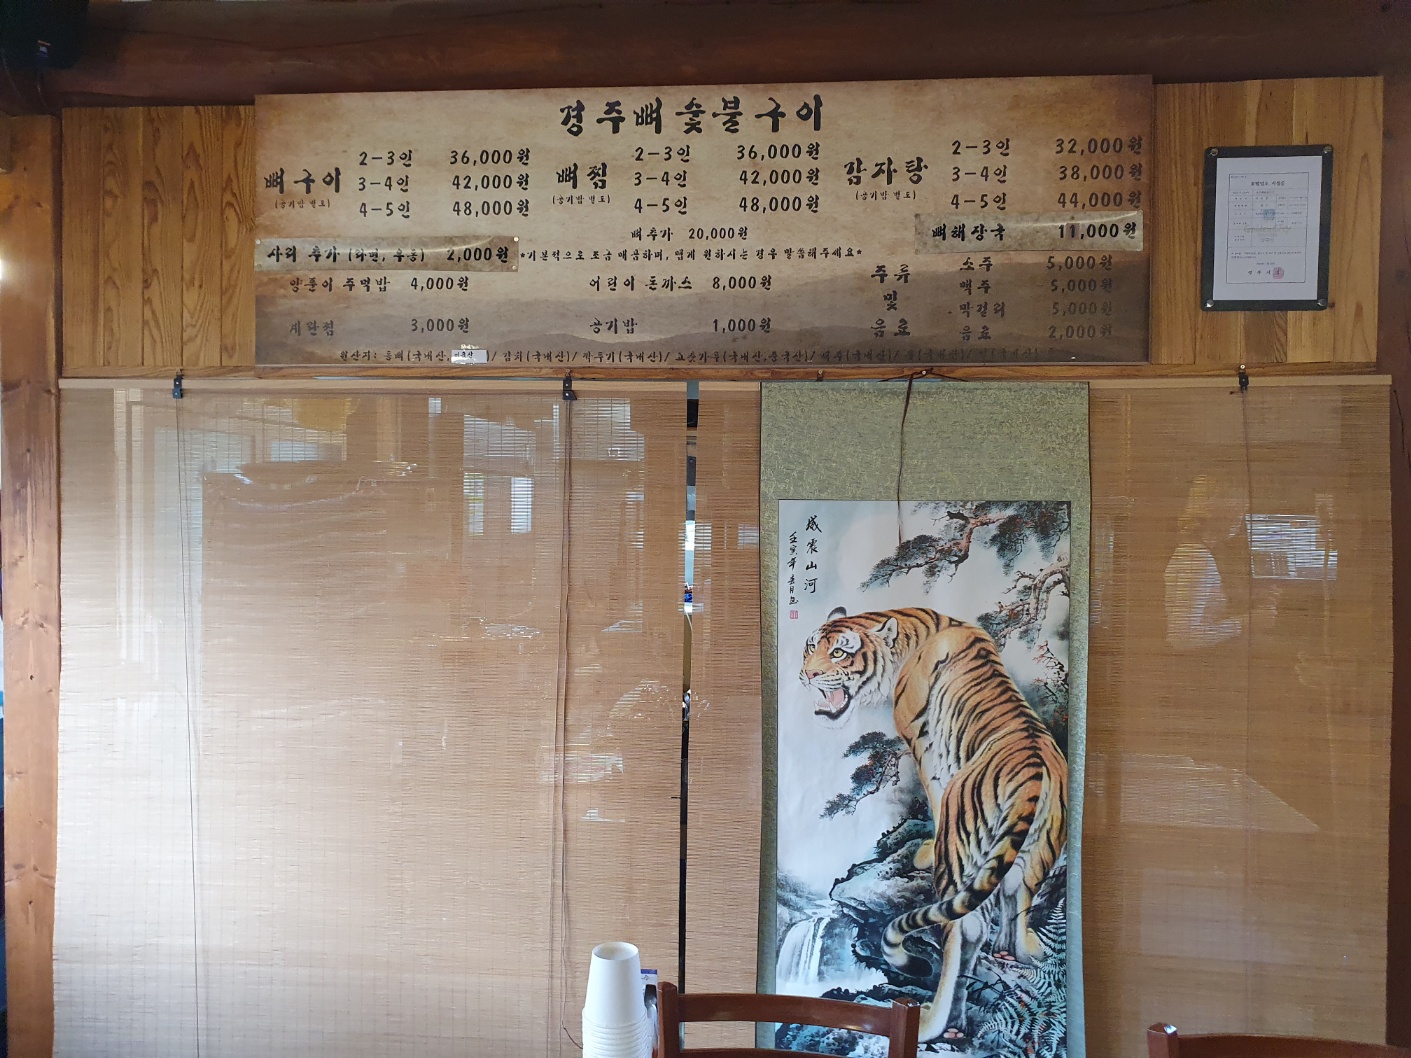 경주뼈숯불구이
뼈구이
(공기밥 별도)
2-3인 36,000원
3-4인 42,000원
4-5인 48,000원
뼈찜
(공기밥 별도)
2-3인 36,000원
3-4인 42,000원
4-5인 48,000원
감자탕
(공기밥 별도)
2-3인 32,000원
3-4인 38,000원
4-5인 44,000원
뼈추가 20,000원
뼈해장국 11,000원
사리 추가 (라면, 우동) 2,000원
*기본적으로 조금 매콤하며, 맵게 원하시는 경우 말씀해주세요*
양푼이 주먹밥 4,000원
어린이 돈까스 8,000원
계란찜 3,000원
공기밥 1,000원
주류
및
음료
소주 5,000원
맥주 5,000원
막걸리 5,000원
음료 2,000원
원산지: 등뼈(국내산, / 김치(국내산)/ 깍두기(국내산)/ 고춧가루(국내산,중국산)/
威震山河
壬寅年